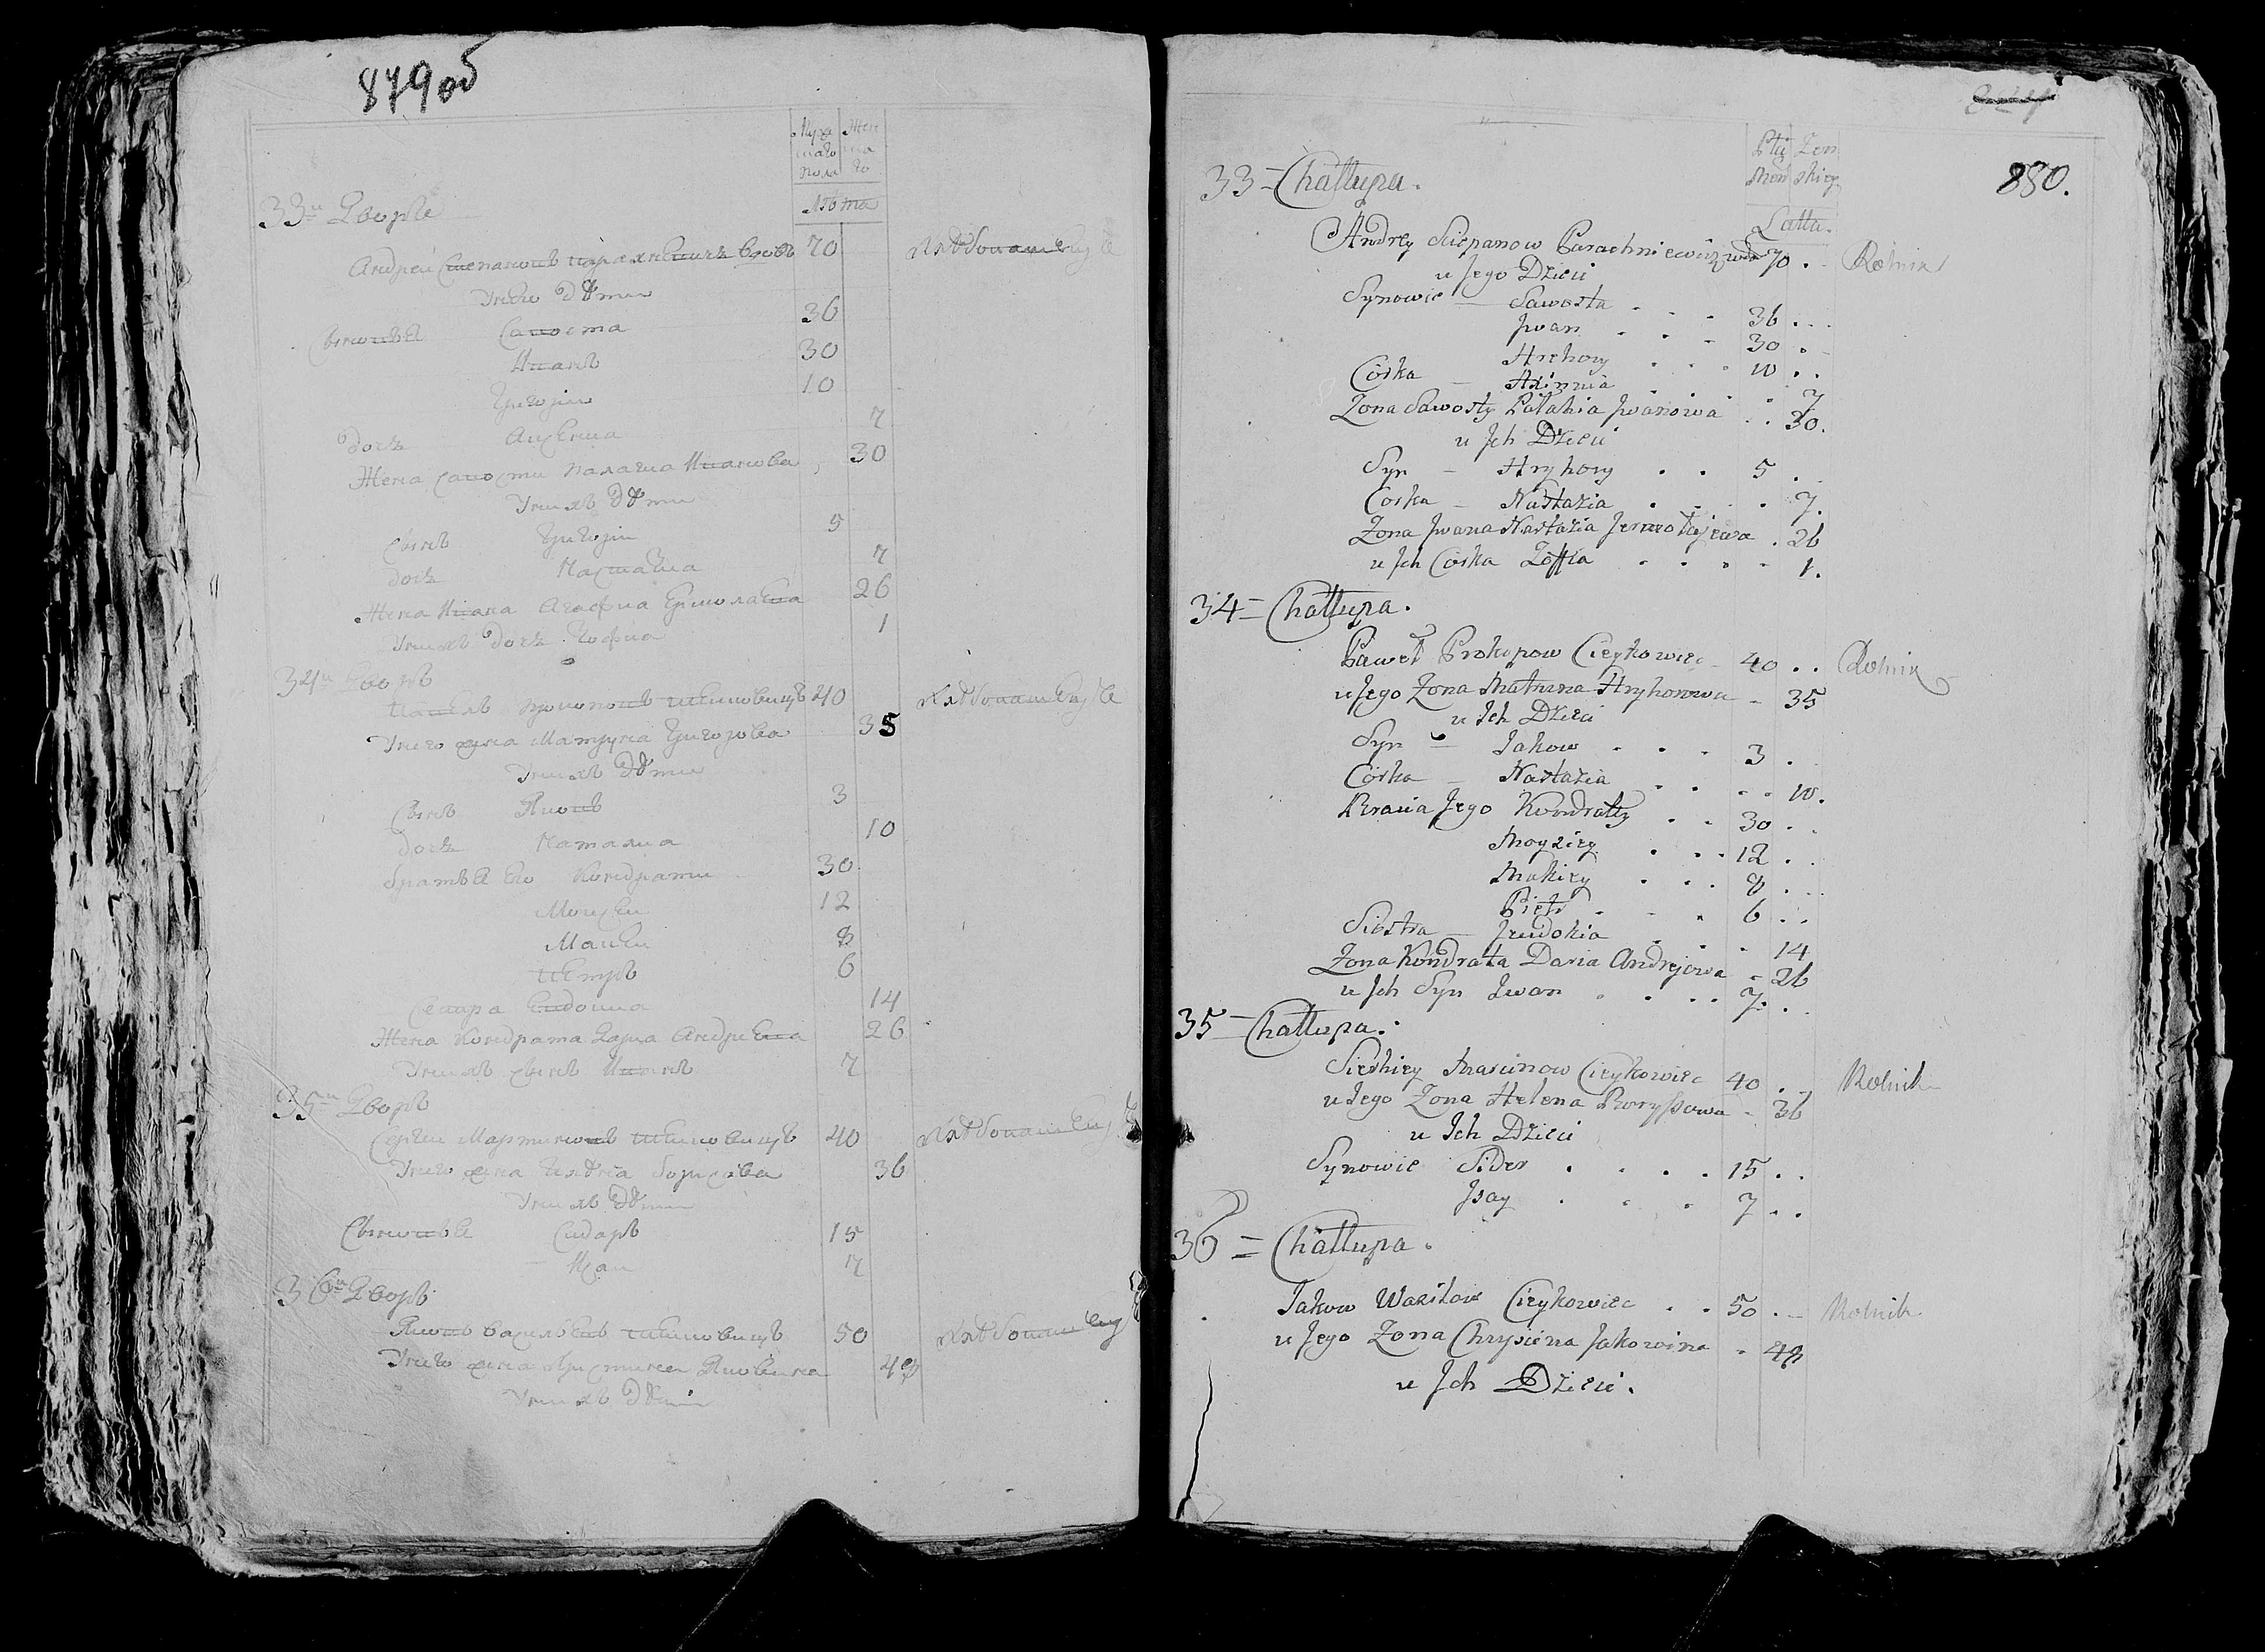 879об
Муже Жен
ска̀го ска
пола го
Лѣта
33й Дворъ
Андрей Степановъ Парахневичъ вдовъ 70 Хлѣбопашецъ
У него дѣти
Сыновья Савоста 36
Иванъ 30
Григорій 10
дочь Аксенья 7
Жена Савости Палагѣя Иванова 30
У нихъ дѣти
Сынъ Григорій 5
дочь Настасья 7
Жена Ивана Агафья Ермолаева 26
У нихъ дочь Софья 1
34й Дворъ
Павелъ Прокоповъ Цейковецъ 40 Хлѣбопашецъ
У него жена Матруна Григорова 35
У нихъ дѣти
Сынъ Яковъ 3
дочь Наталья 10
братья его Кондратій 30
Моисей 12
Макей 8
Петръ 6
Сестра Евдокия 14
Жена Кондрата Дарья Андреева 26
У нихъ сынъ Иванъ 7
35й Дворъ
Сергей Мартиновъ Цейковецъ 40 Хлѣбопашецъ
У него жена Елѣна Борисова 36
У нихъ дѣти
Сыновья Сидоръ 15
Исай 7
36й Дворъ
Яковъ Васильевъ Цейковецъ 50 Хлѣбопашецъ
У него жена Кристина Яковлевна 48
У нихъ дѣти
880.
Płci Zen
Męs skiey
Latta.
33 = Chałłupa.
Andrey Sciepanow Parachniewicz wdo 70 . Rolnik
u Jego Dzieci
Synowie — Sawosta . . . 36 . . .
Jwan . . . 30 . .
Hrehory . . . 10 . .
Corka — Axinnia . . 7
Zona Sawosty Pałahia Jwanowa . . 30.
u Jch Dzieci
Syn — Hryhory . . 5 . .
Corka — Nastazia . . . . 7.
Zona Jwana Nastazia Jermołajewa . 26
u Jch Corka Zoffia . . . . 1.
34 = Chałłupa.
Paweł Prokopow Cieykowiec 40 . . Rolnik
u Jego Zona Matruna Hryhorowa - 35
u Jch Dzieci
Syn — Jakow . . . 3 . .
Corka — Nastazia . . . . 10.
Bracia Jego Kondraty . . 30 . .
Moyziey . . . 12 . .
Makiey . . . 8 . . .
Piotr . . . 6 . .
Siostra — Jewdokia . . . 14
Zona Kondrata Daria Andrejewa - 26
u Jch Syn Jwan . . . . 7 . .
35 = Chałłupa.
Sierhiey Marcinow Cieykowiec 40 . . Rolnik
u Jego Zona Helena Boryssowa - 36
u Jch Dzieci
Synowie Sider . . . . 15 . .
Jsay . . . 7 . .
36 = Chałłupa.
Jakow Wasilow Cieykowiec . . 50 . — Rolnik
u Jego Zona Chrysiena Jakowina - 48
u Jch Dzieci.